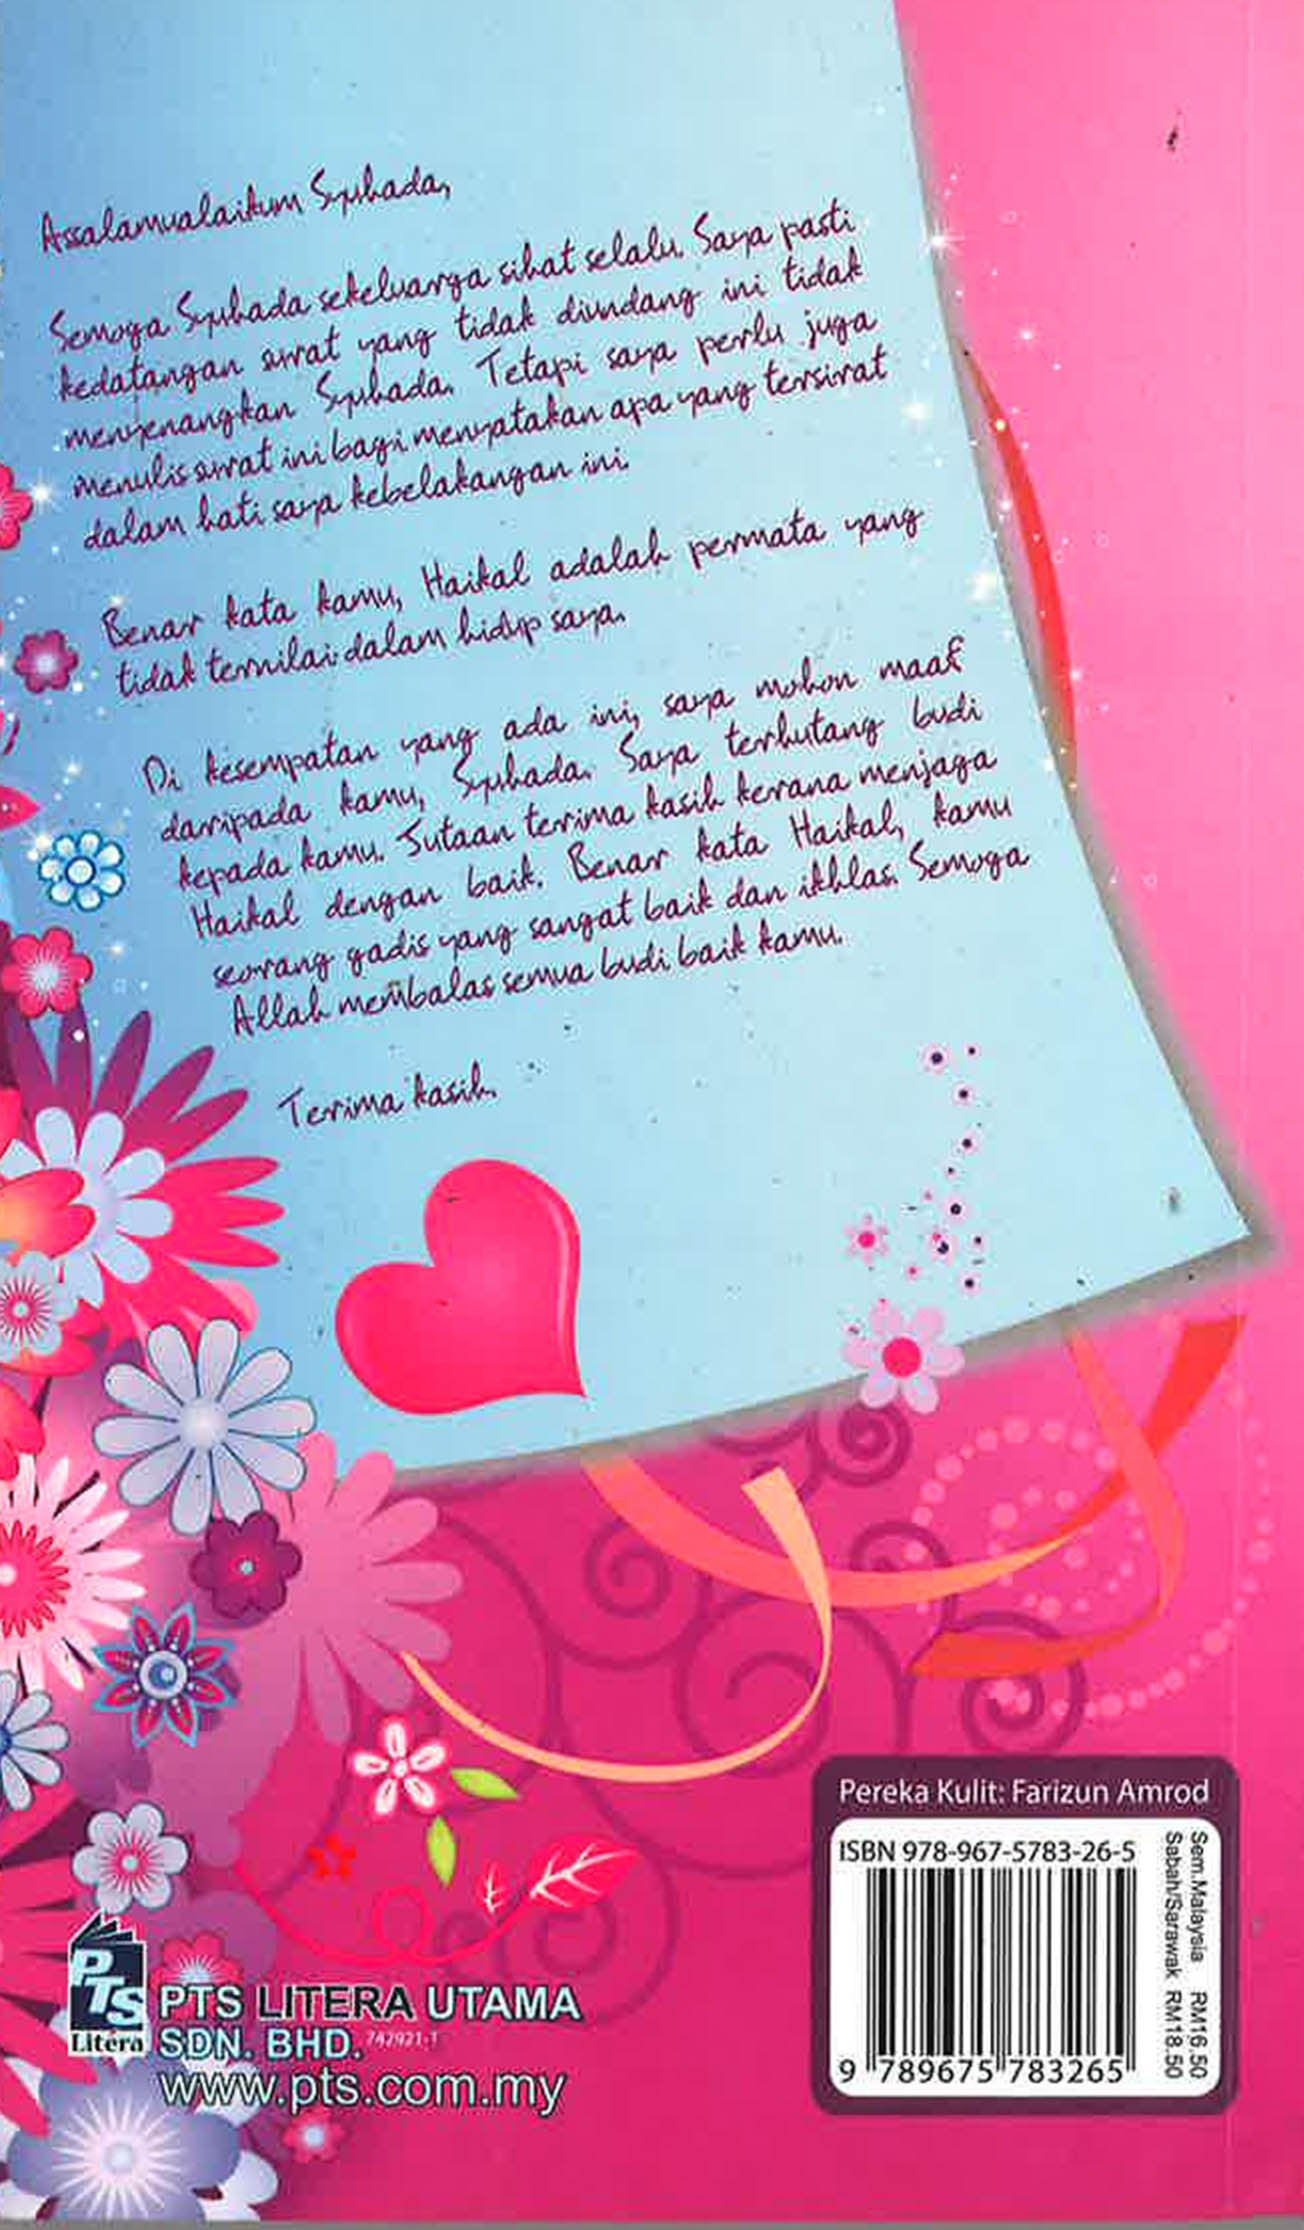 Assalamualaikum Syuhada,
Semoga Syuhada sekeluarga sihat selalu. Saya pasti
kedatangan surat yang tidak diundang ini tidak
menyenangkan Syuhada. Tetapi saya perlu juga
menulis surat ini bagi menyatakan apa yang tersirat
dalam hati saya kebelakangan ini.
Benar kata kamu, Haikal adalah permata yang
tidak ternilai dalam hidup saya.
Di kesempatan yang ada ini, saya mohon maaf
daripada kamu, Syuhada. Saya terhutang budi
kepada kamu. Jutaan terima kasih kerana menjaga
Haikal dengan baik. Benar kata Haikal, kamu
seorang gadis yang sangat baik dan ikhlas. Semoga
Allah membalas semua budi baik kamu.
Terima kasih.
Pereka Kulit: Farizun Amrod
ISBN 978-967-5783-26-5
9 789675 783265
Sem.Malaysia RM16.50
Sabah/Sarawak RM18.50
PTS
Litera
PTS LITERA UTAMA
SDN. BHD. 742921-T
www.pts.com.my